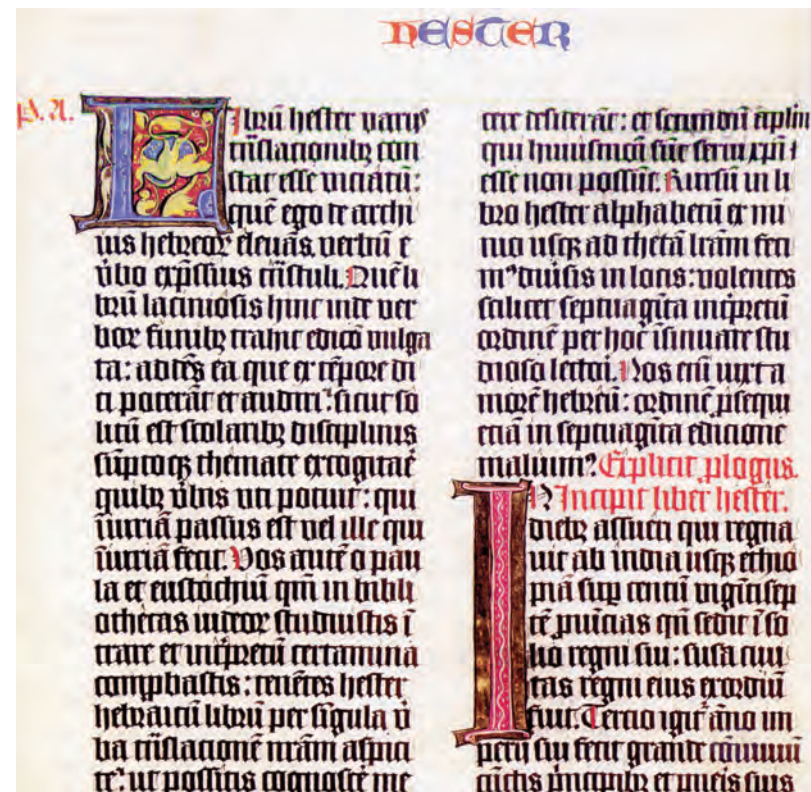 HESTER
P. A.
Librū hester variis
trāslatorib9 con
stat esse viciatū:
quē ego de archi
uis hebreorꝝ eleuās, verbū e
v̄bo exp̄ssius trāstuli. Quē li
brū laciniosis hinc inde ver
borꝝ funib9 trahit edicō vulga
ta: addēs ea que ex tēpore di
ci poterāt et audiri. sicut so
litū est scolarib9 disciplinis
sūpto qꝫ themate excogitare
quib9 v̄bis vti potuit: qui
iniuriā passus est vel ille qui
iniuriā fecit. Vos autē o pau
la et eustochiū qm̄ in bibli
othecas iudeorꝝ studuistis ī
trare et int̄pretū certamina
comp̄bastis: tenētes hester
hebraicū librū per sīgula v̄
ba trāslationē nr̄am aspici
te: ut possitis cognoscē me
qui huiusmōi
esse non possūt. Rursū in li
bro hester alphabetū ex mi
nio usqꝫ ad thetā lrām feci
mꝰ diuisis in locis: volentes
scilicet septuagīta int̄pretū
ordinē per hoc īsinuare stu
dioso lectori. Nos enī iuxta
morē hebreū: ordinē p̄sequi
etiā in septuagīta editione
maluimꝰ. Explicit plogus.
Incipit liber hester.
In dieb9 assueri qui regna
uit ab india usqꝫ ethio
piā sup centū vigītisep
tē puīcias qn̄ sedit ī so
lio regni sui: susa ciui
tas regni eius exordiū
fuit. Tercio igit̄ āno im
perii sui fecit grande cōuiuiū
cūctis pncipib9 et pueis suis